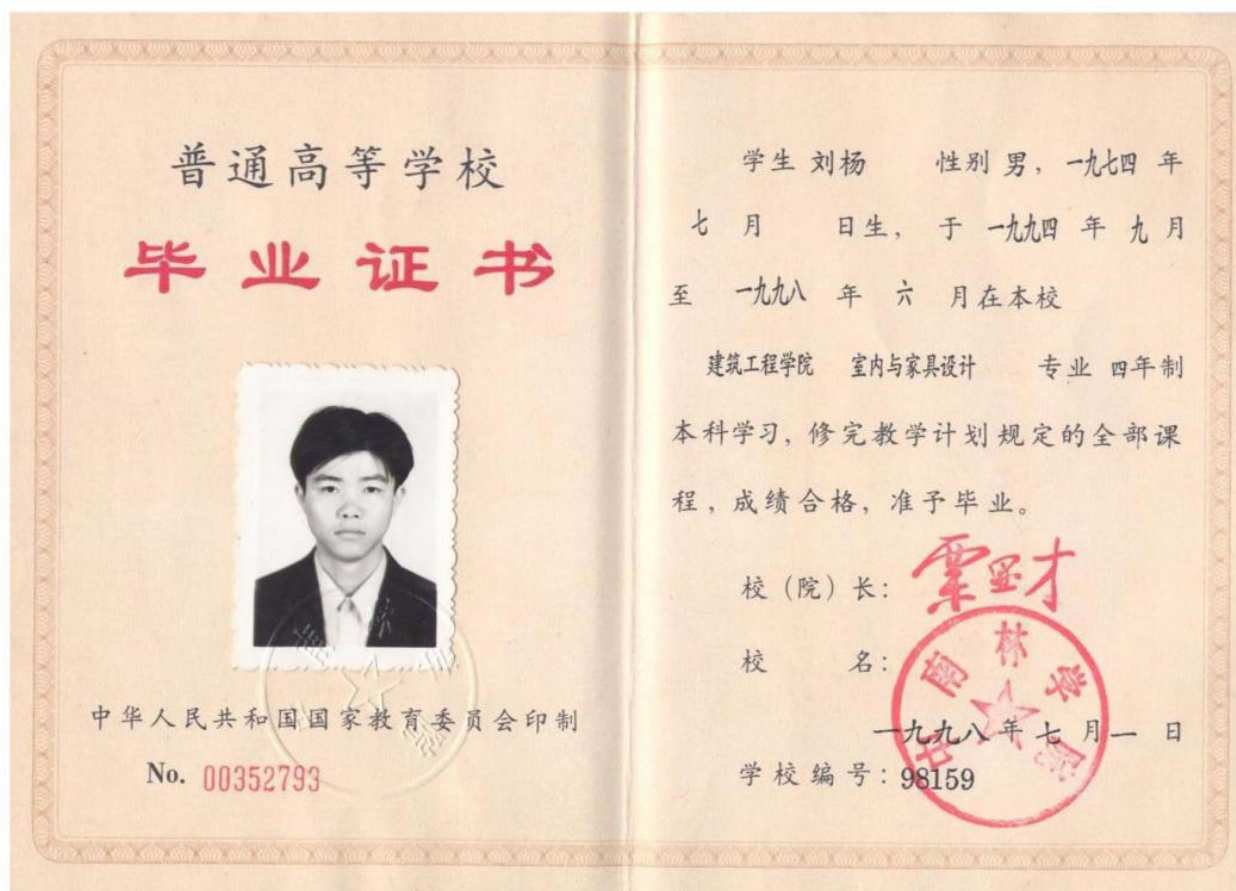 普通高等学校
毕业证书
中华人民共和国国家教育委员会印制
No. 00352793
学生 刘杨 性别 男，一九七四 年
七 月 日生，于 一九九四 年 九 月
至 一九九八 年 六 月在本校
建筑工程学院 室内与家具设计 专业 四年制
本科学习，修完教学计划规定的全部课
程，成绩合格，准予毕业。
校（院）长：
校 名：
中南林学院
一九九八 年 七 月 一 日
学校编号：98159